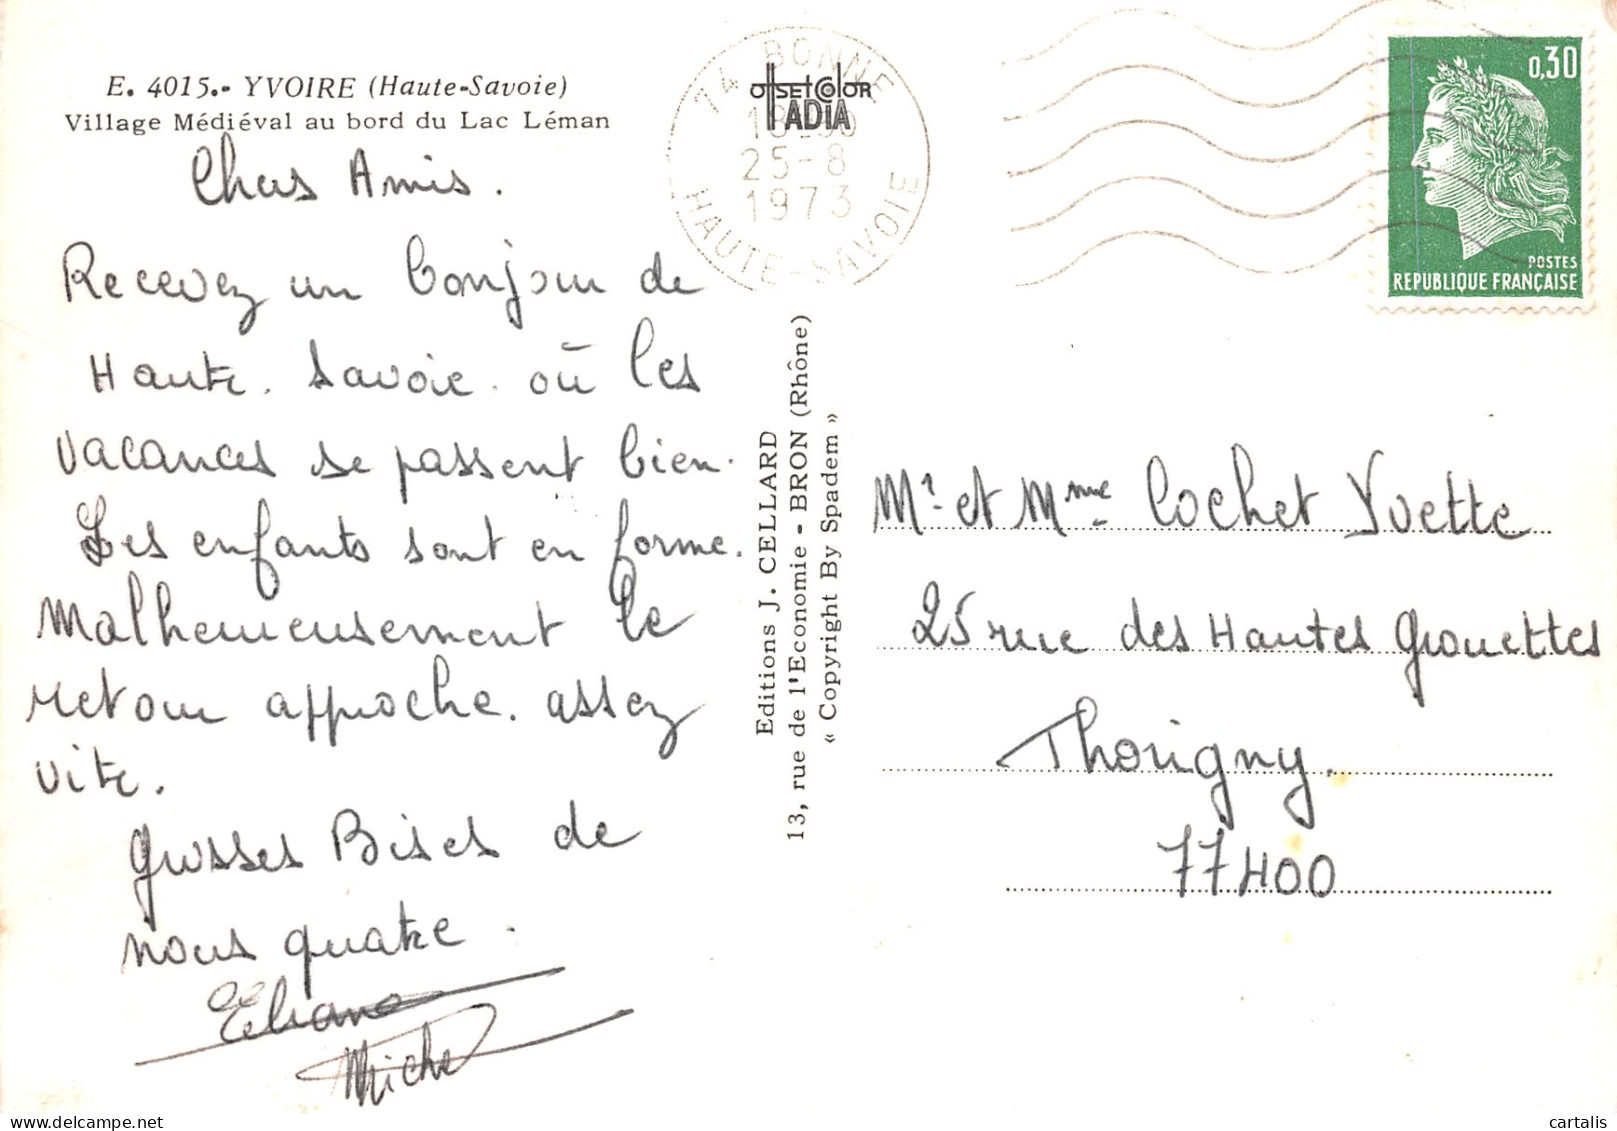 E. 4015.- YVOIRE (Haute-Savoie)
Village Médiéval au bord du Lac Léman
Chers Amis.
Recevez un bonjour de
Haute. Savoie. où les
vacances se passent bien.
Les enfants sont en forme.
Malheureusement le
retour approche. assez
vite.
Grosses Bises de
nous quatre.
Eliane
Michel
74 BONNE
25-8
1973
HAUTE-SAVOIE
offset color
ADIA
0,30
POSTES
REPUBLIQUE FRANÇAISE
Editions J. CELLARD
13, rue de l'Economie - BRON (Rhône)
« Copyright By Spadem »
Mr. et Mme Cochet Yvette
25 rue des Hautes Grouettes
Thorigny.
77400
cartalis
delcampe.net